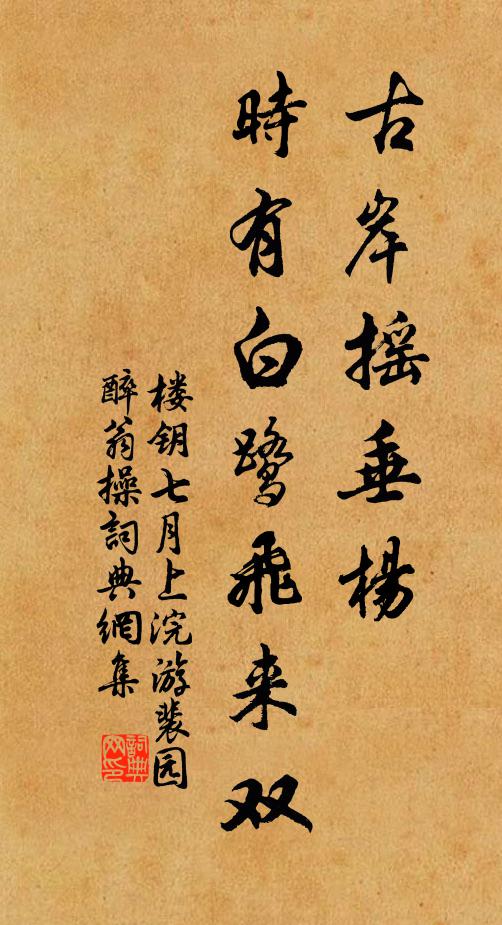 古岸摇垂楊
時有白鹭飛来双
楼钥七月上浣游裴园
醉翁操詞典網集
詞典网印